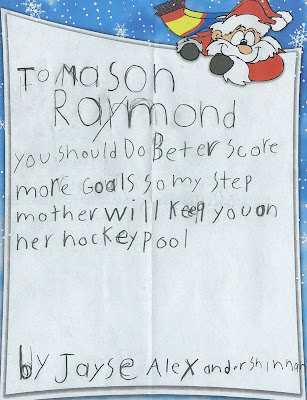 To Mason
Raymond
you should Do Beter score
more Goals so my step
mother will Keep you on
her hockey pool
by Jayse Alexandershinnan